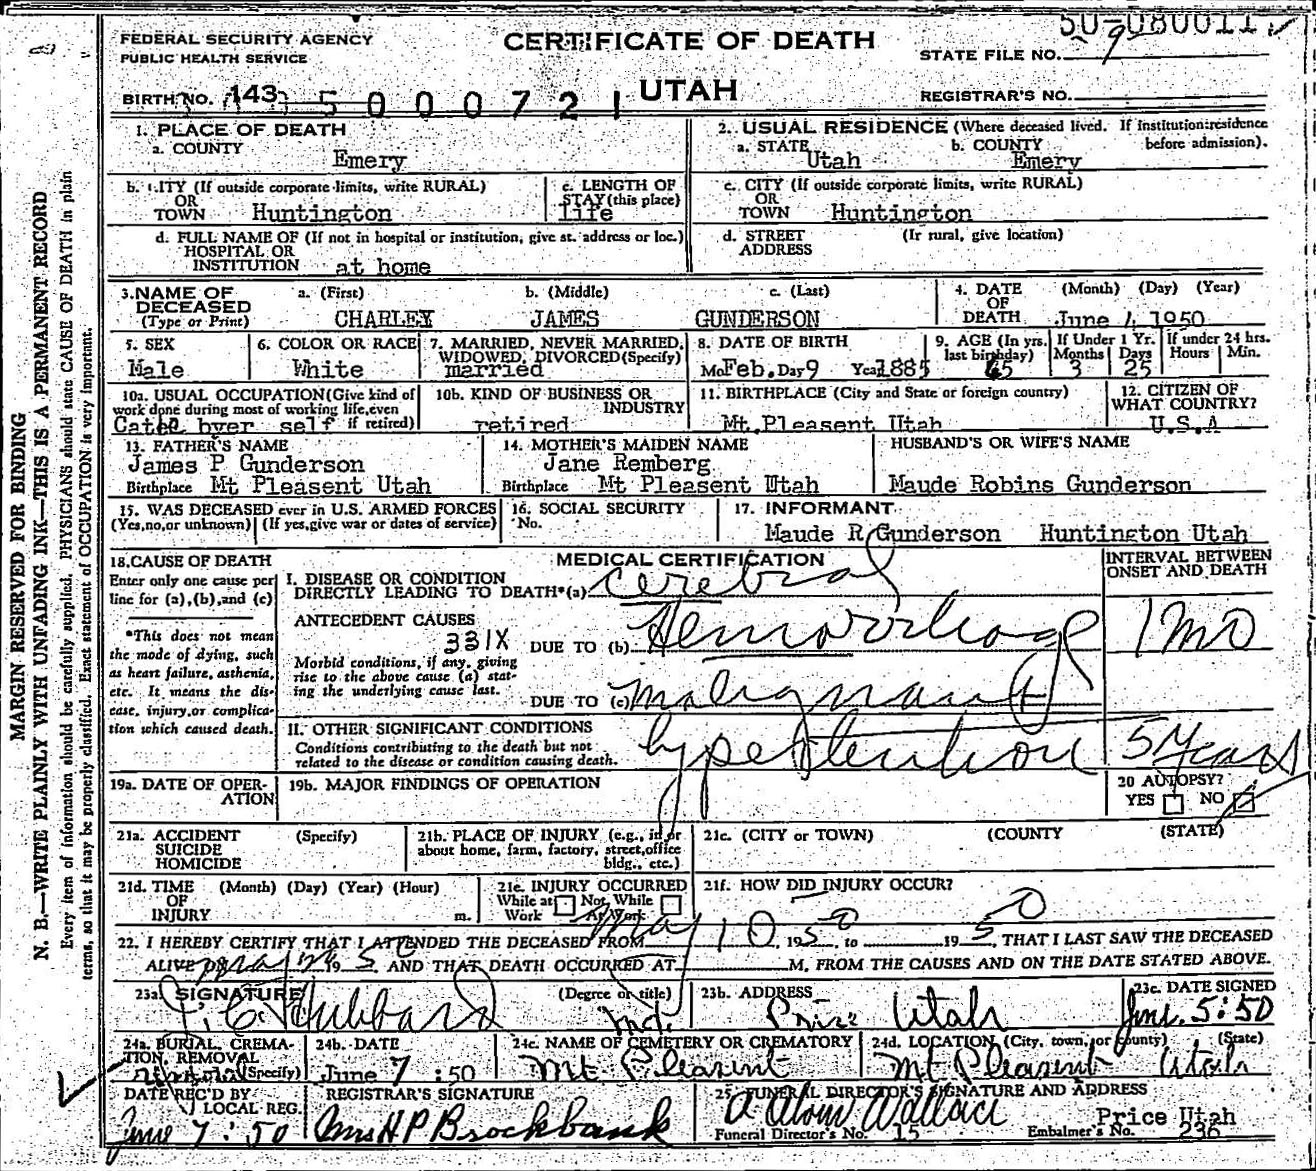 FEDERAL SECURITY AGENCY
PUBLIC HEALTH SERVICE
CERTIFICATE OF DEATH
STATE FILE NO.
BIRTH NO. 143 5 0 0 0 7 2 1
UTAH
REGISTRAR'S NO.
MARGIN RESERVED FOR BINDING
N. B.—WRITE PLAINLY WITH UNFADING INK—THIS IS A PERMANENT RECORD
Every item of information should be carefully supplied. PHYSICIANS should state CAUSE OF DEATH in plain
terms, so that it may be properly classified. Exact statement of OCCUPATION is very important.
1. PLACE OF DEATH
a. COUNTY
Emery
2. USUAL RESIDENCE (Where deceased lived. If institution: residence
a. STATE b. COUNTY before admission).
Utah Emery
b. CITY (If outside corporate limits, write RURAL)
OR
TOWN Huntington
c. LENGTH OF
STAY (this place)
life
c. CITY (If outside corporate limits, write RURAL)
OR
TOWN Huntington
d. FULL NAME OF (If not in hospital or institution, give st. address or loc.)
HOSPITAL OR
INSTITUTION at home
d. STREET (Ir rural, give location)
ADDRESS
3. NAME OF a. (First) b. (Middle) c. (Last)
DECEASED
(Type or Print) CHARLEY JAMES GUNDERSON
4. DATE (Month) (Day) (Year)
OF
DEATH June 4 1950
5. SEX
Male
6. COLOR OR RACE
White
7. MARRIED, NEVER MARRIED,
WIDOWED, DIVORCED (Specify)
married
8. DATE OF BIRTH
Mo Feb. Day 9 Yea 1885
9. AGE (In yrs. If Under 1 Yr. If under 24 hrs.
last birthday) Months Days Hours Min.
65 3 25
10a. USUAL OCCUPATION (Give kind of
work done during most of working life, even
self if retired)
10b. KIND OF BUSINESS OR
INDUSTRY
retired
11. BIRTHPLACE (City and State or foreign country)
Mt. Pleasent Utah
12. CITIZEN OF
WHAT COUNTRY?
U.S.A
13. FATHER'S NAME
James P Gunderson
Birthplace Mt Pleasent Utah
14. MOTHER'S MAIDEN NAME
Jane Remberg
Birthplace Mt Pleasent Utah
HUSBAND'S OR WIFE'S NAME
Maude Robins Gunderson
15. WAS DECEASED ever in U.S. ARMED FORCES
(Yes, no, or unknown) (If yes, give war or dates of service)
16. SOCIAL SECURITY
No.
17. INFORMANT
Maude R Gunderson Huntington Utah
18. CAUSE OF DEATH
Enter only one cause per
line for (a), (b), and (c)
*This does not mean
the mode of dying, such
as heart failure, asthenia,
etc. It means the dis-
ease, injury, or complica-
tion which caused death.
MEDICAL CERTIFICATION
INTERVAL BETWEEN
ONSET AND DEATH
I. DISEASE OR CONDITION
DIRECTLY LEADING TO DEATH*(a) Cerebral
ANTECEDENT CAUSES
331X DUE TO (b) Hemorrhage 1 mo
Morbid conditions, if any, giving
rise to the above cause (a) stat-
ing the underlying cause last.
DUE TO (c) malignant
II. OTHER SIGNIFICANT CONDITIONS
Conditions contributing to the death but not
related to the disease or condition causing death.
hypertention 5 years
19a. DATE OF OPER-
ATION
19b. MAJOR FINDINGS OF OPERATION
20 AUTOPSY?
YES NO
21a. ACCIDENT (Specify)
SUICIDE
HOMICIDE
21b. PLACE OF INJURY (e.g., in or
about home, farm, factory, street, office
bldg., etc.)
21c. (CITY or TOWN) (COUNTY (STATE)
21d. TIME (Month) (Day) (Year) (Hour)
OF
INJURY m.
21e. INJURY OCCURRED
While at Not While
Work At Work
21f. HOW DID INJURY OCCUR?
22. I HEREBY CERTIFY THAT I ATTENDED THE DECEASED FROM May 10, 1950 to 1950, THAT I LAST SAW THE DECEASED
ALIVE 1950 AND THAT DEATH OCCURRED AT M. FROM THE CAUSES AND ON THE DATE STATED ABOVE.
23a. SIGNATURE (Degree or title)
J. C. Hubbard Md.
23b. ADDRESS
Price Utah
23c. DATE SIGNED
June. 5:50
24a. BURIAL, CREMA-
TION, REMOVAL
removal (Specify)
24b. DATE
June 7 :50
24c. NAME OF CEMETERY OR CREMATORY
Mt Pleasent
24d. LOCATION (City, town, or county) (State)
Mt Pleasent Utah
DATE REC'D BY
LOCAL REG.
June 7:50
REGISTRAR'S SIGNATURE
Mrs H P Brockbank
25. FUNERAL DIRECTOR'S SIGNATURE AND ADDRESS
Wallace
Price Utah
Funeral Director's No. 15 Embalmer's No. 236